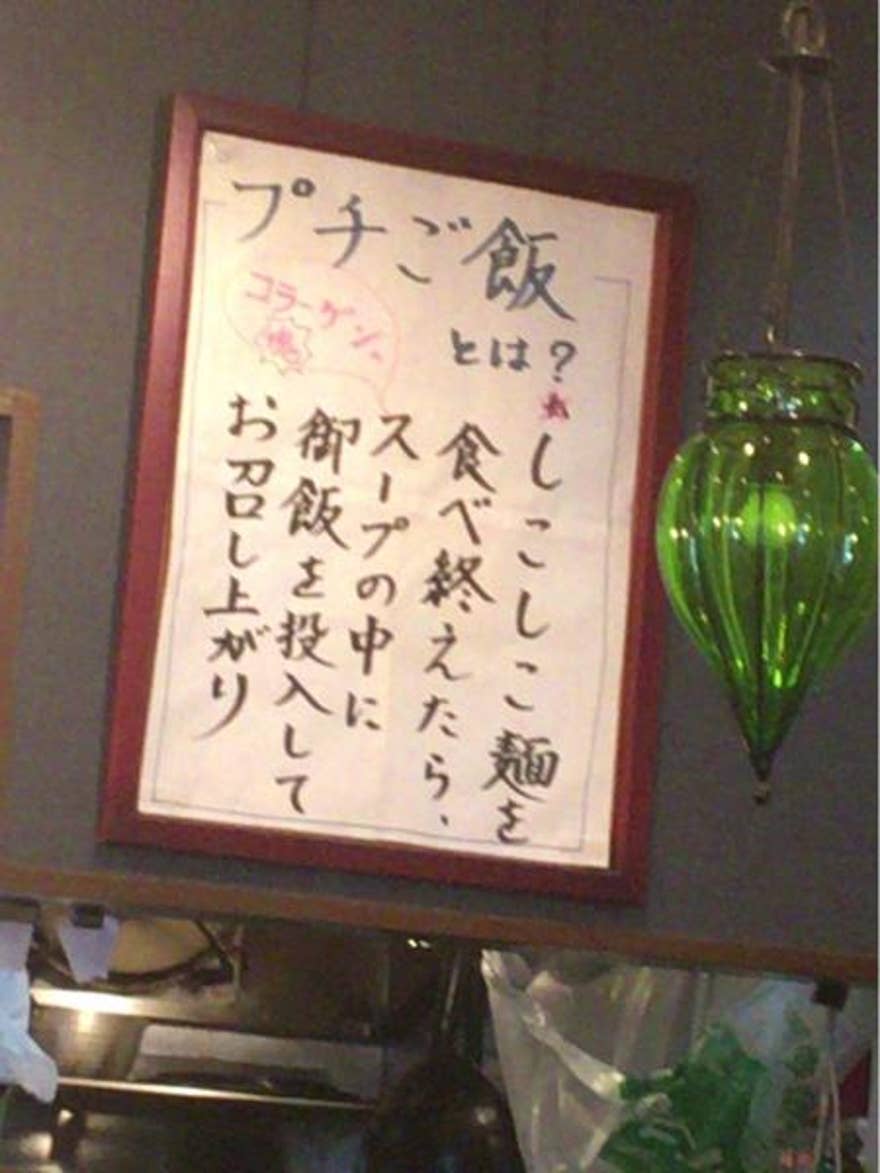 プチご飯
とは?
しこしこ麺を
食べ終えたら、
スープの中に
御飯を投入して
お召し上がり
コラーゲン、